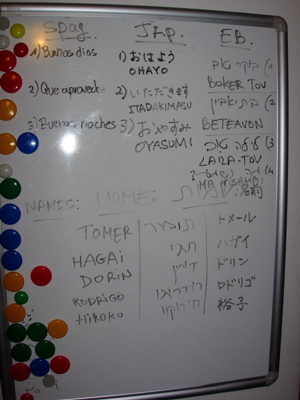 SPag. JAP. EB.
1) Buenos dias 1) おはよう
OHAYO
BOKER TOV
2) Que aproveche 2) いただきます
ITADAKIMASU
BETEAVON
3) Buenas noches 3) おやすみ
OYASUMI
LAILA-TOV
NAMES: NOME: שמות
TOMER תומר トメール
HAGAI חגי ハガイ
DORIN דורין ドリン
RODRIGO רודריגו ロドリゴ
HIROKO הירוקו 裕子